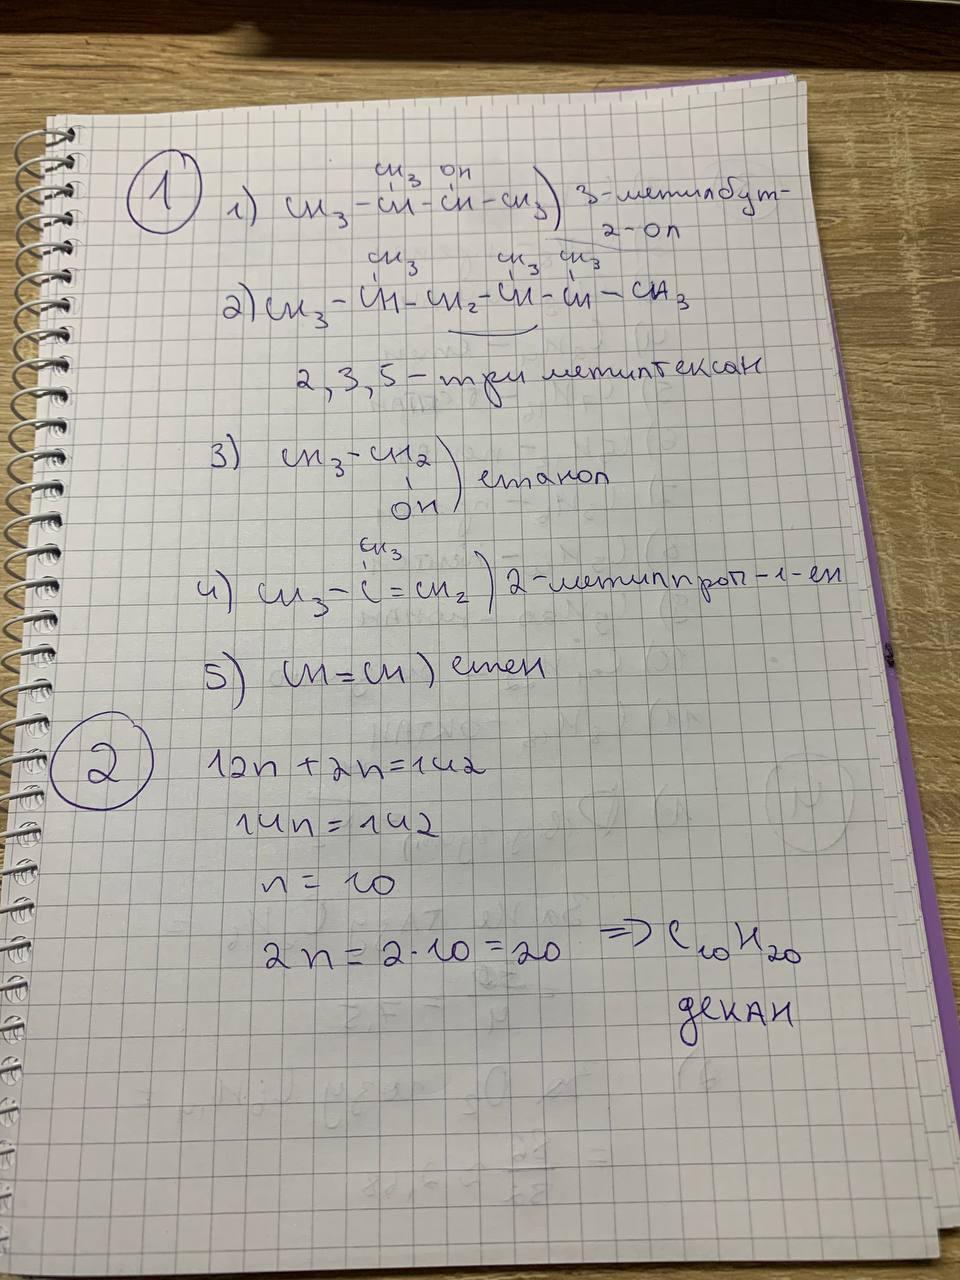 1
CH3 OH
1) CH3 - CH - CH - CH3) 3-метилбут-
2-ол
CH3 CH3 CH3
2) CH3 - CH - CH2 - CH - CH - CH3
2, 3, 5 - триметилгексан
3) CH3 - CH2 ) етанол
OH
CH3
4) CH3 - C = CH2 ) 2-метилпроп-1-ен
5) CH = CH ) етен
2
12n + 2n = 142
14n = 142
n = 10
2n = 2·10 = 20 => C10H20
декан